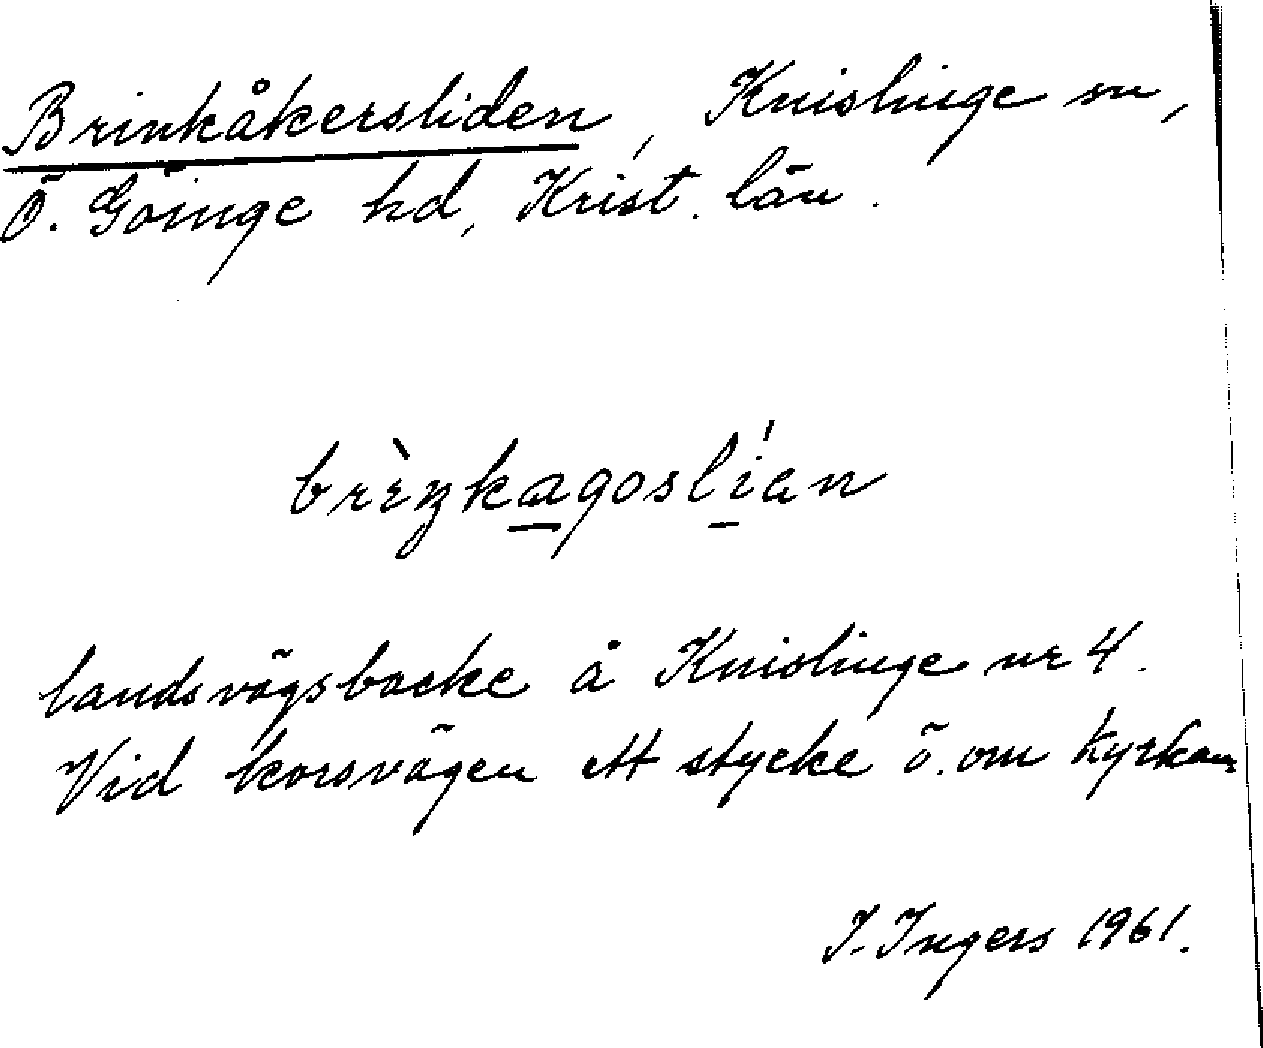 Brinkåkersliden, Knislinge sn,
Ö. Göinge hd, Krist. län.
brìŋkagoslían
landsvägsbacke å Knislinge nr 4.
Vid korsvägen ett stycke ö. om kyrkan.
I. Ingers 1961.